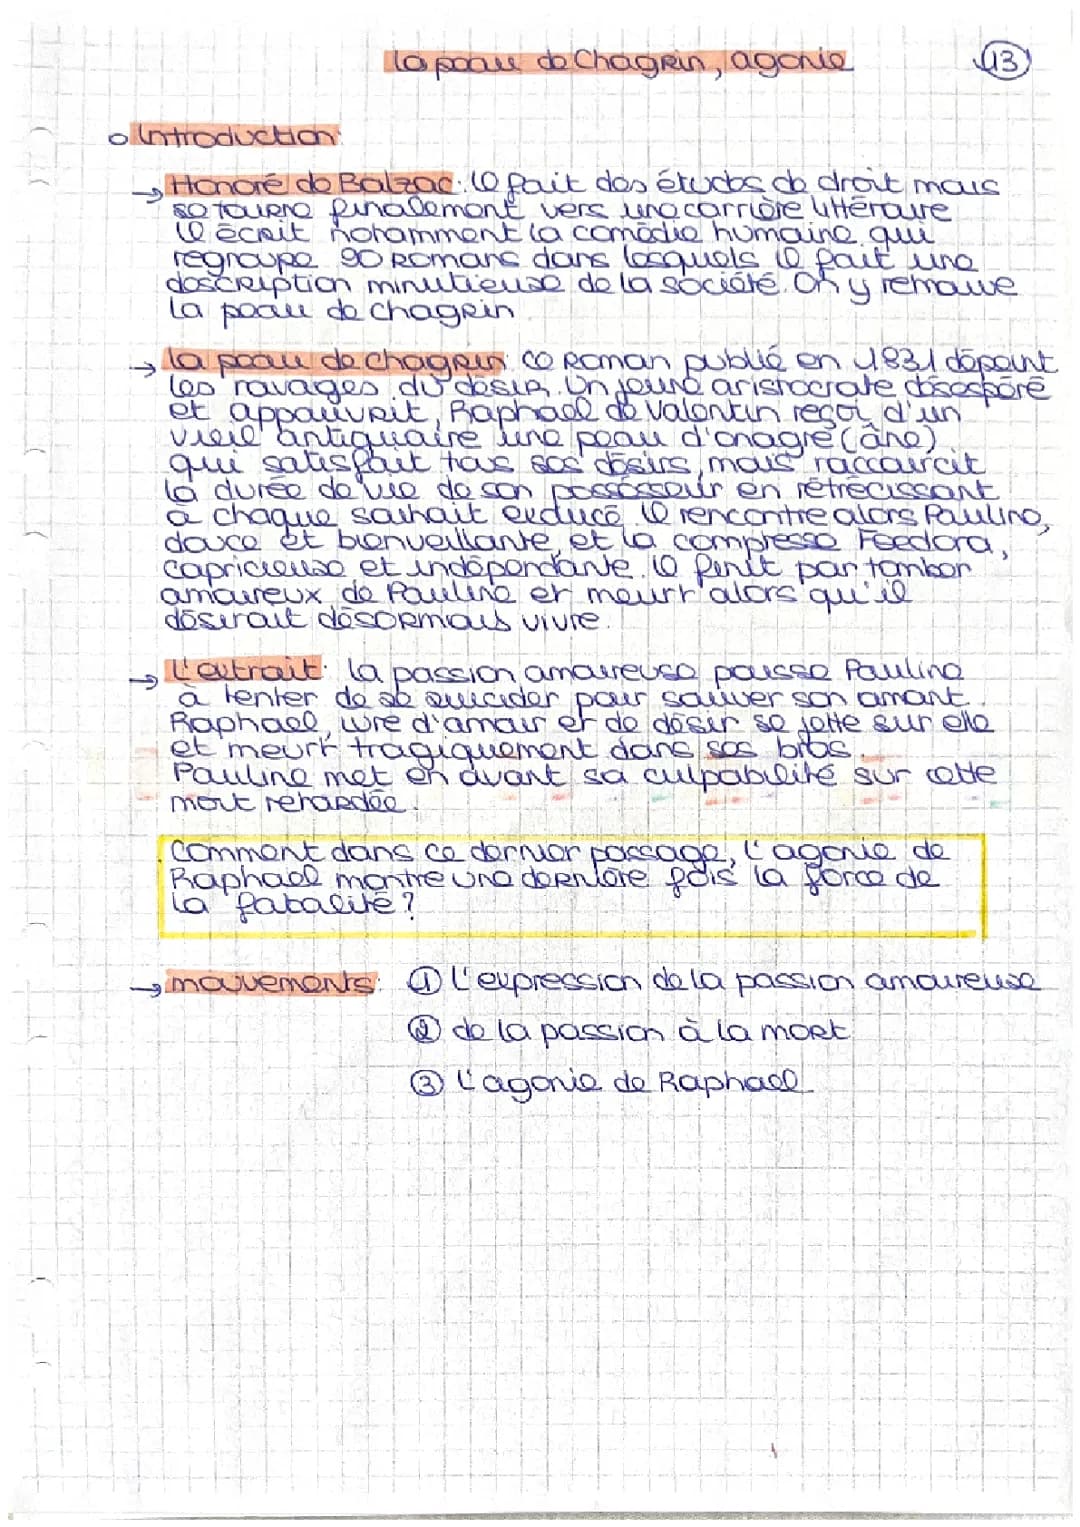 la peau de Chagrin, agonie
13
Introduction:
→ Honoré de Balzac: Il fait des études de droit mais
se tourne finalement vers une carrière littéraire
Il écrit notamment la comédie humaine qui
regroupe 90 romans dans lesquels il fait une
description minutieuse de la société. On y remarque
la peau de chagrin
→ la peau de chagrin: ce roman publié en 1831 dépeint
les ravages du désir. Un jeune aristocrate désespéré
et appauvrit, Raphael de Valentin reçoi d'un
vieil antiquaire une peau d'onagre (âne)
qui satisfait tous ses désirs, mais raccourcit
la durée de vie de son possesseur en rétrécissant
à chaque souhait exaucé. Il rencontre alors Pauline,
douce et bienveillante et la compresse Feedora,
capricieuse et indépendante. Il finit par tomber
amoureux de Pauline et meurt alors qu'il
désirait désormais vivre.
→ L'extrait: la passion amoureuse pousse Pauline
à tenter de se suicider pour sauver son amant.
Raphael, ivre d'amour et de désir se jette sur elle
et meurt tragiquement dans ses bras.
Pauline met en avant sa culpabilité sur cette
mort retardée.
Comment dans ce dernier passage, l'agonie de
Raphael montre une dernière fois la force de
la fatalité?
→ mouvements: ① L'expression de la passion amoureuse
② de la passion à la mort
③ L'agonie de Raphael